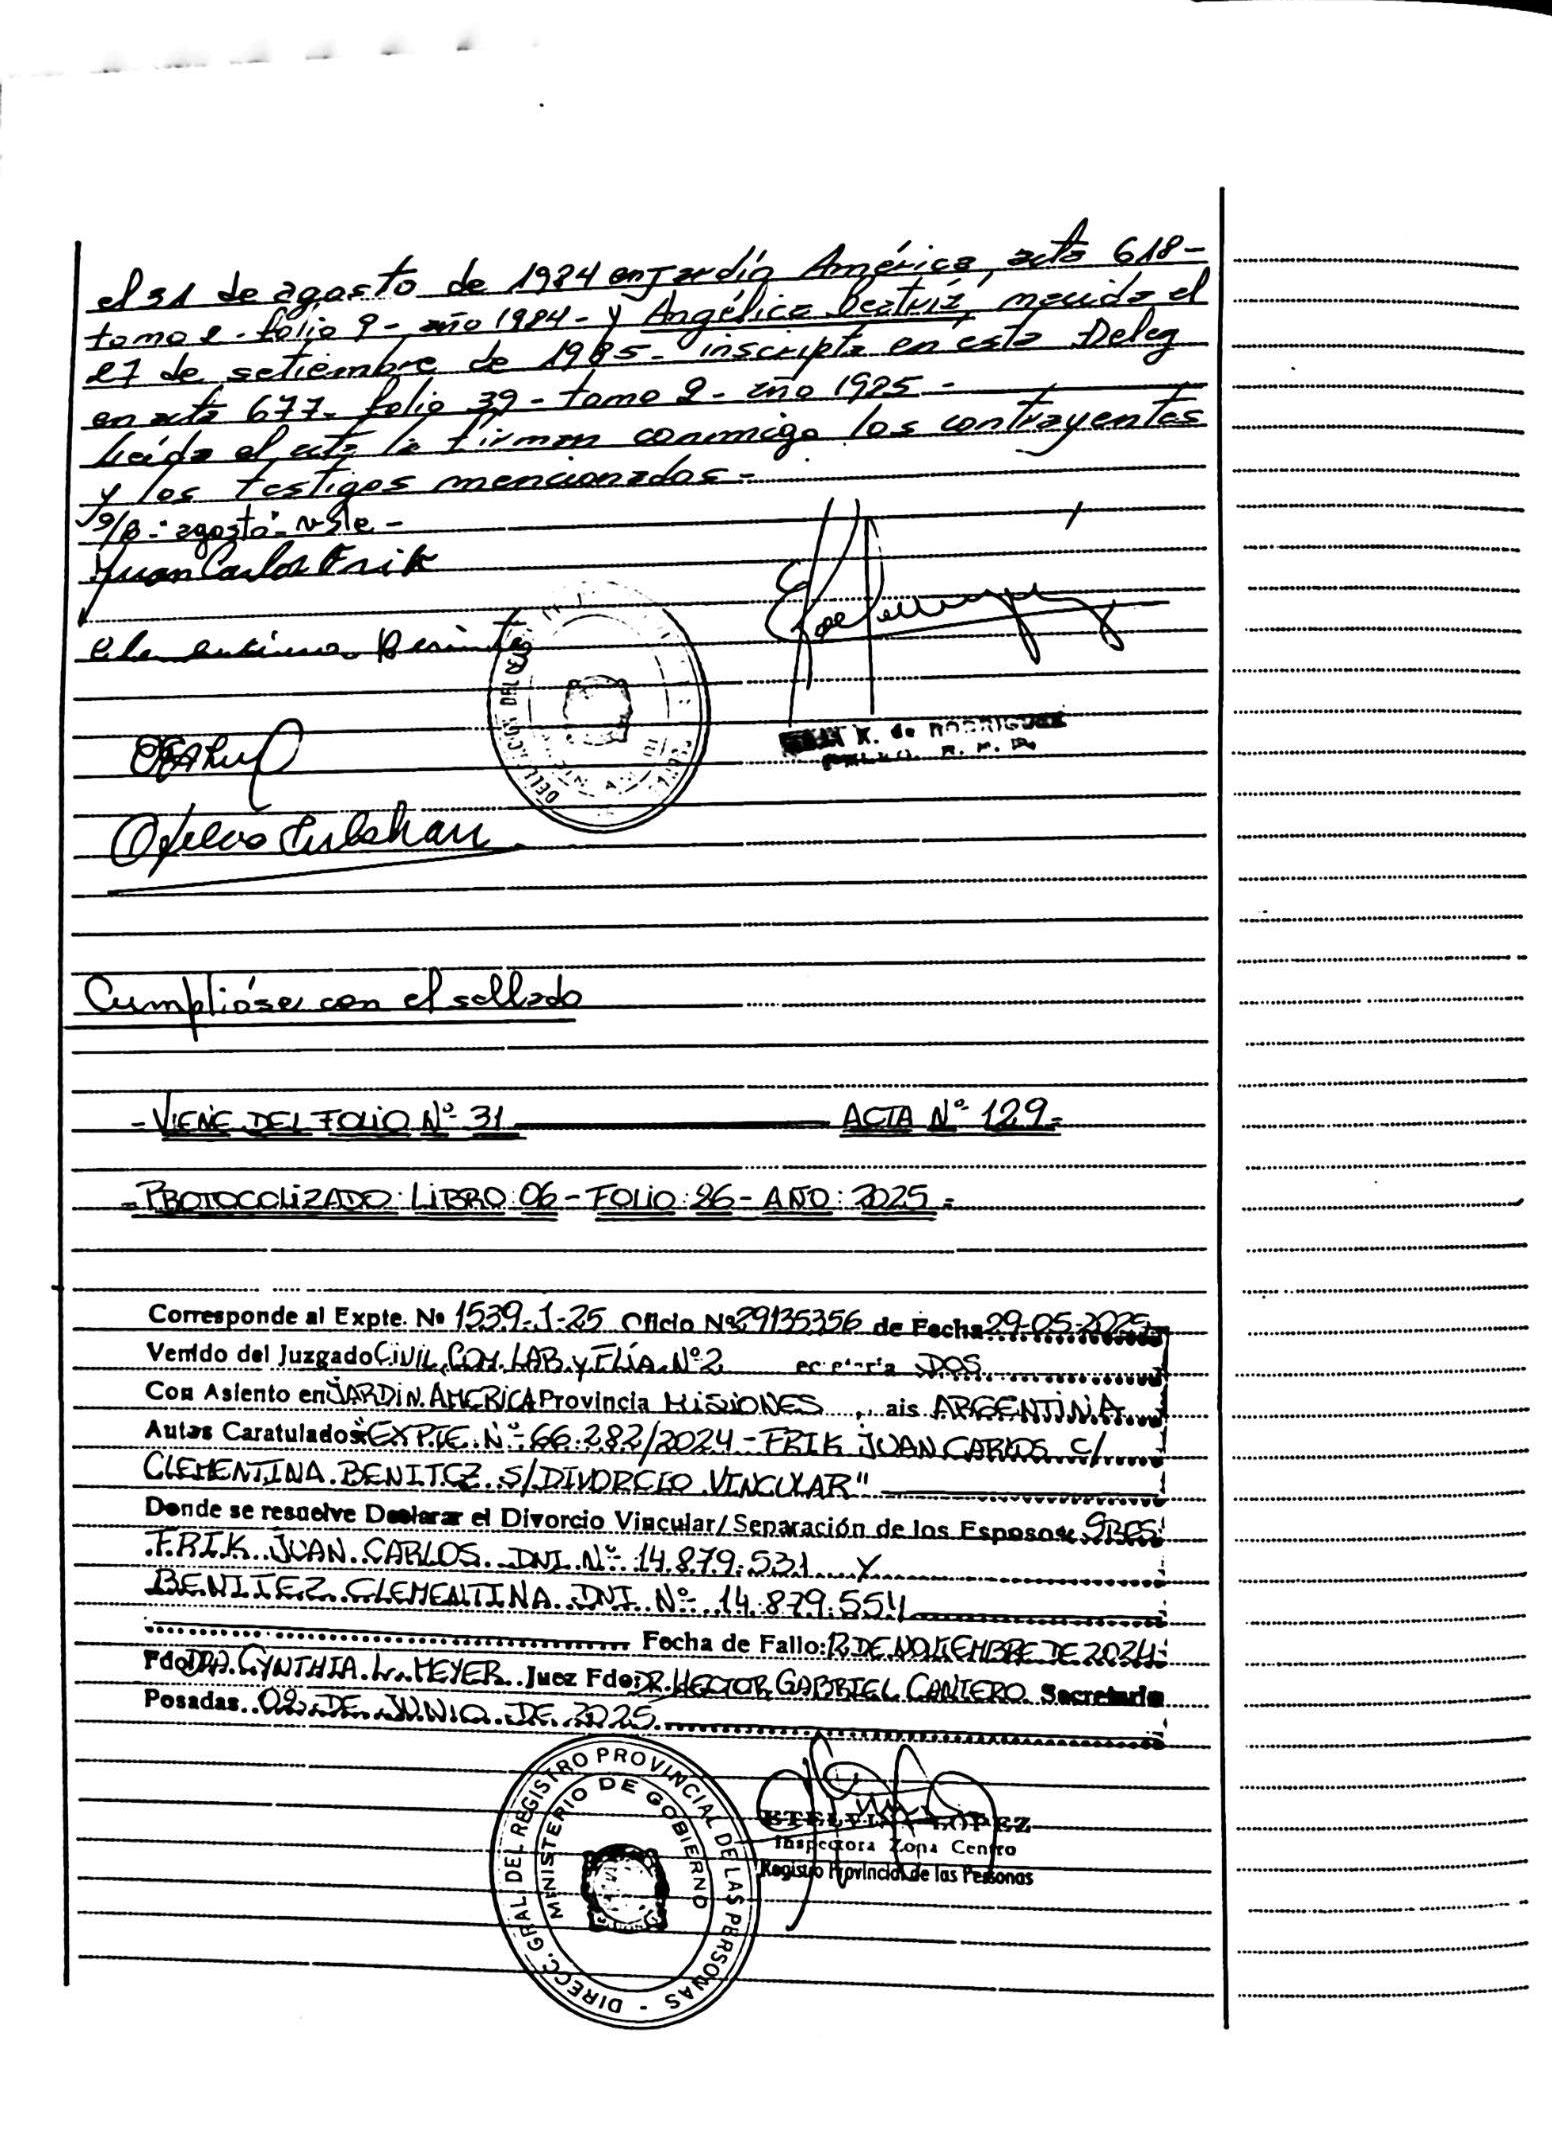 el 31 de agosto de 1984 en Jardín América, acta 618-
tomo 2- folio 9- año 1984- y Angélica Beatríz, nacida el
27 de setiembre de 1985- inscripta en esta Deleg
en acta 677- folio 39- tomo 2- año 1985-
leída el acta la firman conmigo los contrayentes
y los testigos mencionados-
S/B- "agosto"- vale-
Juan Carlos Frik
Clementina Benitez
K. de RODRIGUEZ
Cumplióse con el sellado
- VIENE DEL FOLIO Nº 31 ACTA Nº 129-
- PROTOCOLIZADO: LIBRO: 06 - FOLIO: 86 - AÑO: 2025-
Corresponde al Expte. Nº 1539-J-25 Oficio Nº 29135356 de Fecha 29-05-2025
Venido del Juzgado CIVIL, COM. LAB. y FLIA. Nº 2 ecretaría DOS
Con Asiento en JARDIN AMERICA Provincia MISIONES ais ARGENTINA
Autos Caratulados "EXPTE. Nº 66.282/2024 - FRIK JUAN CARLOS C/
CLEMENTINA BENITEZ S/DIVORCIO VINCULAR"
Donde se resuelve Declarar el Divorcio Vincular/Separación de los Esposos: SRES.
FRIK JUAN CARLOS DNI Nº 14.879.531 Y
BENITEZ CLEMENTINA DNI Nº 14.879.554
Fecha de Fallo: 12 DE NOVIEMBRE DE 2024
Fdo DRA. CYNTHIA L. MEYER Juez Fdo: DR. HECTOR GABRIEL CANTERO Secretario
Posadas 02 DE JUNIO DE 2025
DIRECC. GRAL. DEL REGISTRO PROVINCIAL DE LAS PERSONAS -
MINISTERIO DE GOBIERNO
ETELVINA LOPEZ
Inspectora Zona Centro
Registro Provincial de las Personas